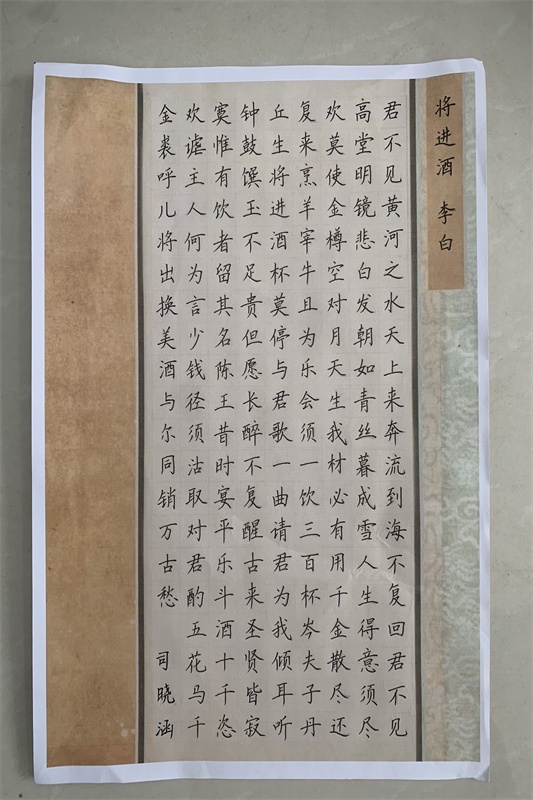 将进酒 李白
君不见黄河之水天上来奔流到海不复回君不见
高堂明镜悲白发朝如青丝暮成雪人生得意须尽
欢莫使金樽空对月天生我材必有用千金散尽还
复来烹羊宰牛且为乐会须一饮三百杯岑夫子丹
丘生将进酒杯莫停与君歌一曲请君为我倾耳听
钟鼓馔玉不足贵但愿长醉不复醒古来圣贤皆寂
寞惟有饮者留其名陈王昔时宴平乐斗酒十千恣
欢谑主人何为言少钱径须沽取对君酌五花马千
金裘呼儿将出换美酒与尔同销万古愁 司晓涵